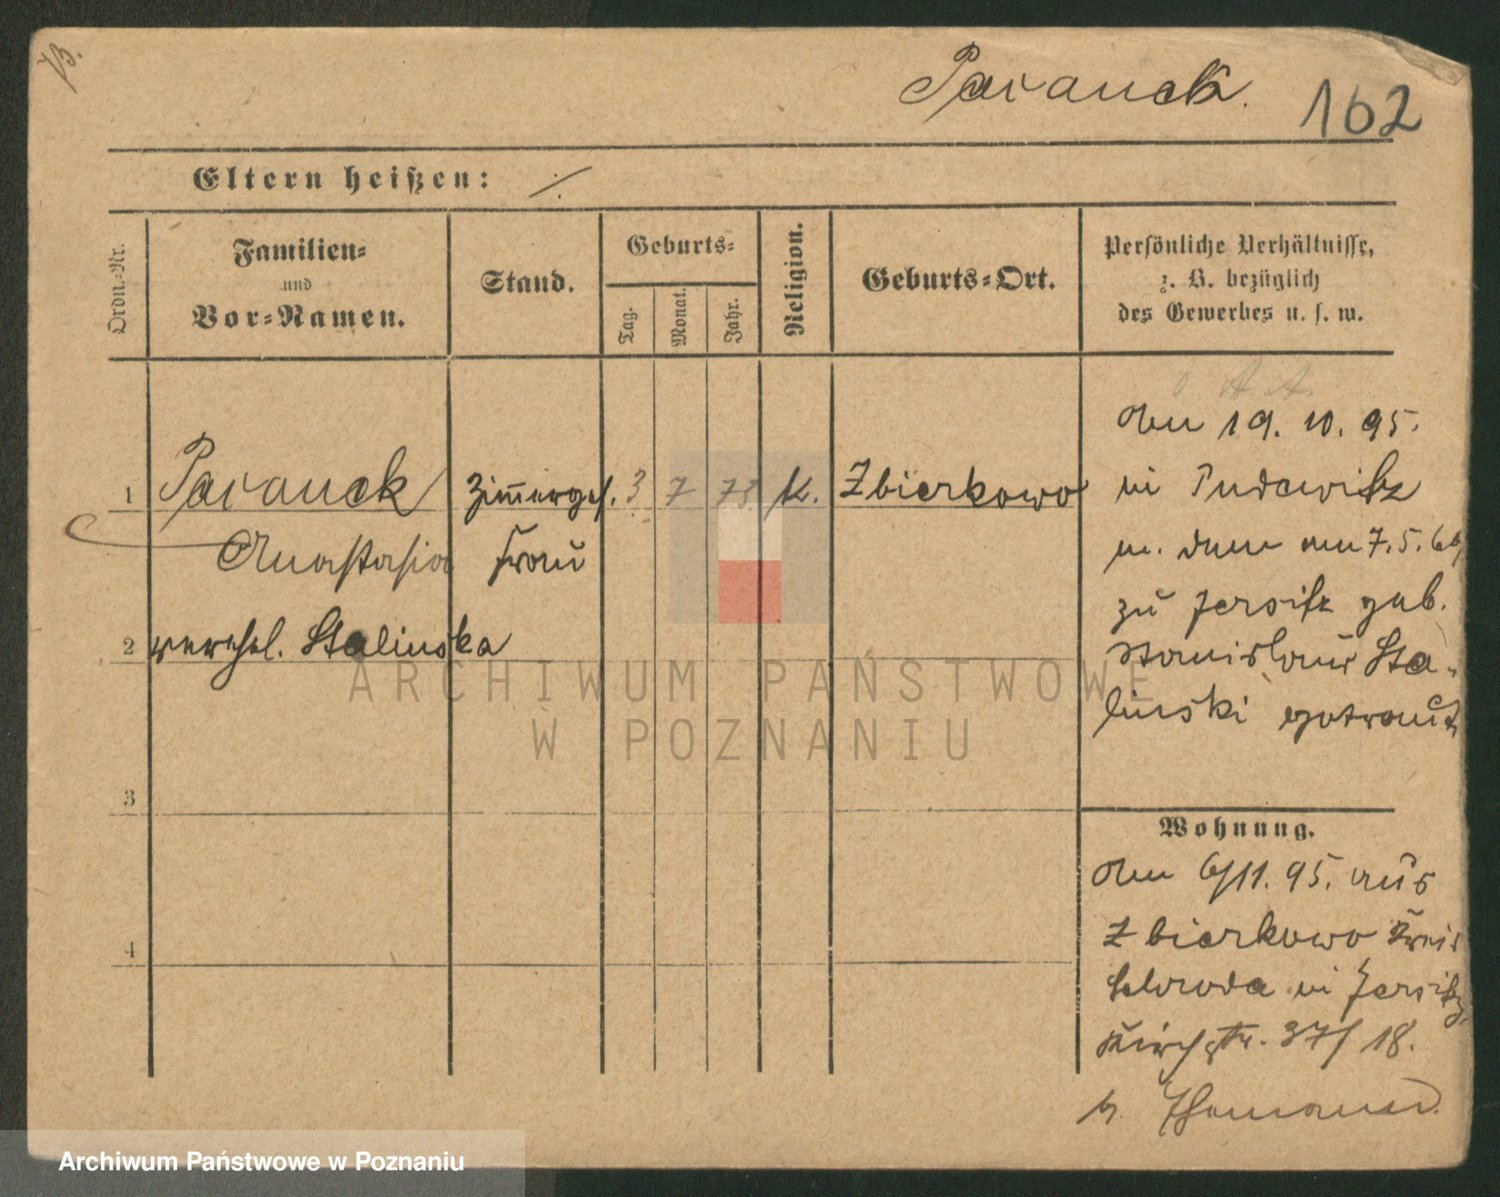 Paranck.
162
Eltern heißen: ./.
Ordn.-Nr.
Familien-
und
Vor-Namen.
Stand.
Geburts-
Tag.
Monat.
Jahr.
Religion.
Geburts-Ort.
Persönliche Verhältnisse,
z. B. bezüglich
des Gewerbes u. s. w.
1
Paranck
Zimmerges. 3 7 73 k. Zbierkowo
Anastasia
Frau
2
verehel. Stalinska
3
4
Den 19. 10. 95.
in Pudewitz
m. dem am 7. 5. 69
zu Jersitz geb.
Stanislaus Sta-
linski getraut
Wohnung.
Den 6/11. 95. aus
Zbierkowo Kreis
Schroda in Jersitz,
Kirchstr. 37/18.
b.
ARCHIWUM PAŃSTWOWE
W POZNANIU
Archiwum Państwowe w Poznaniu